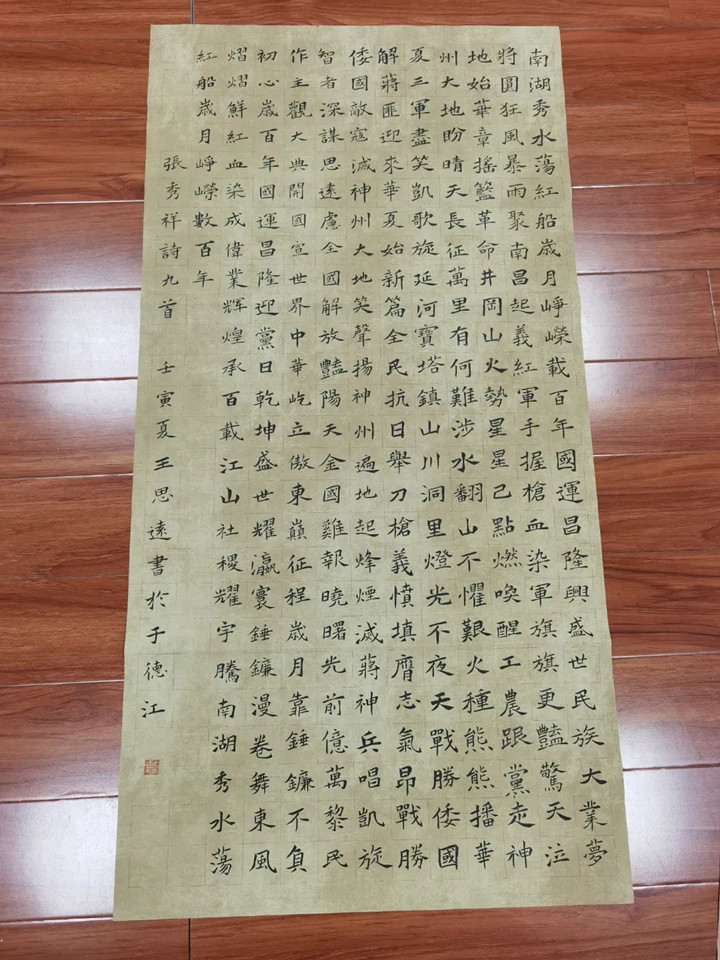 南湖秀水蕩紅船歲月崢嶸載百年國運昌隆興盛世民族大業夢
將圓狂風暴雨聚南昌起義紅軍手握槍血染軍旗旗更豔驚天泣
地始華章搖籃革命井岡山火勢星星已點燃喚醒工農跟黨走神
州大地盼晴天長征萬里有何難涉水翻山不懼艱火種熊熊播華
夏三軍盡笑凱歌旋延河寶塔鎮山川洞里燈光不夜天戰勝倭國
解蔣匪迎來華夏始新篇全民抗日舉刀槍義憤填膺志氣昂戰勝
倭國敵寇滅神州大地笑聲揚神州遍地起烽煙滅蔣神兵唱凱旋
智者深謀思遠慮全國解放豔陽天金國雞報曉曙光前億萬黎民
作主觀大典開國宣世界中華屹立傲東巔征程歲月靠錘鐮不負
初心歲百年國運昌隆迎黨日乾坤盛世耀瀛寰錘鐮漫卷舞東風
熠熠鮮紅血染成偉業辉煌承百載江山社稷耀宇騰南湖秀水蕩
紅船歲月崢嶸數百年
張秀祥詩九首 壬寅夏王思遠書於于德江